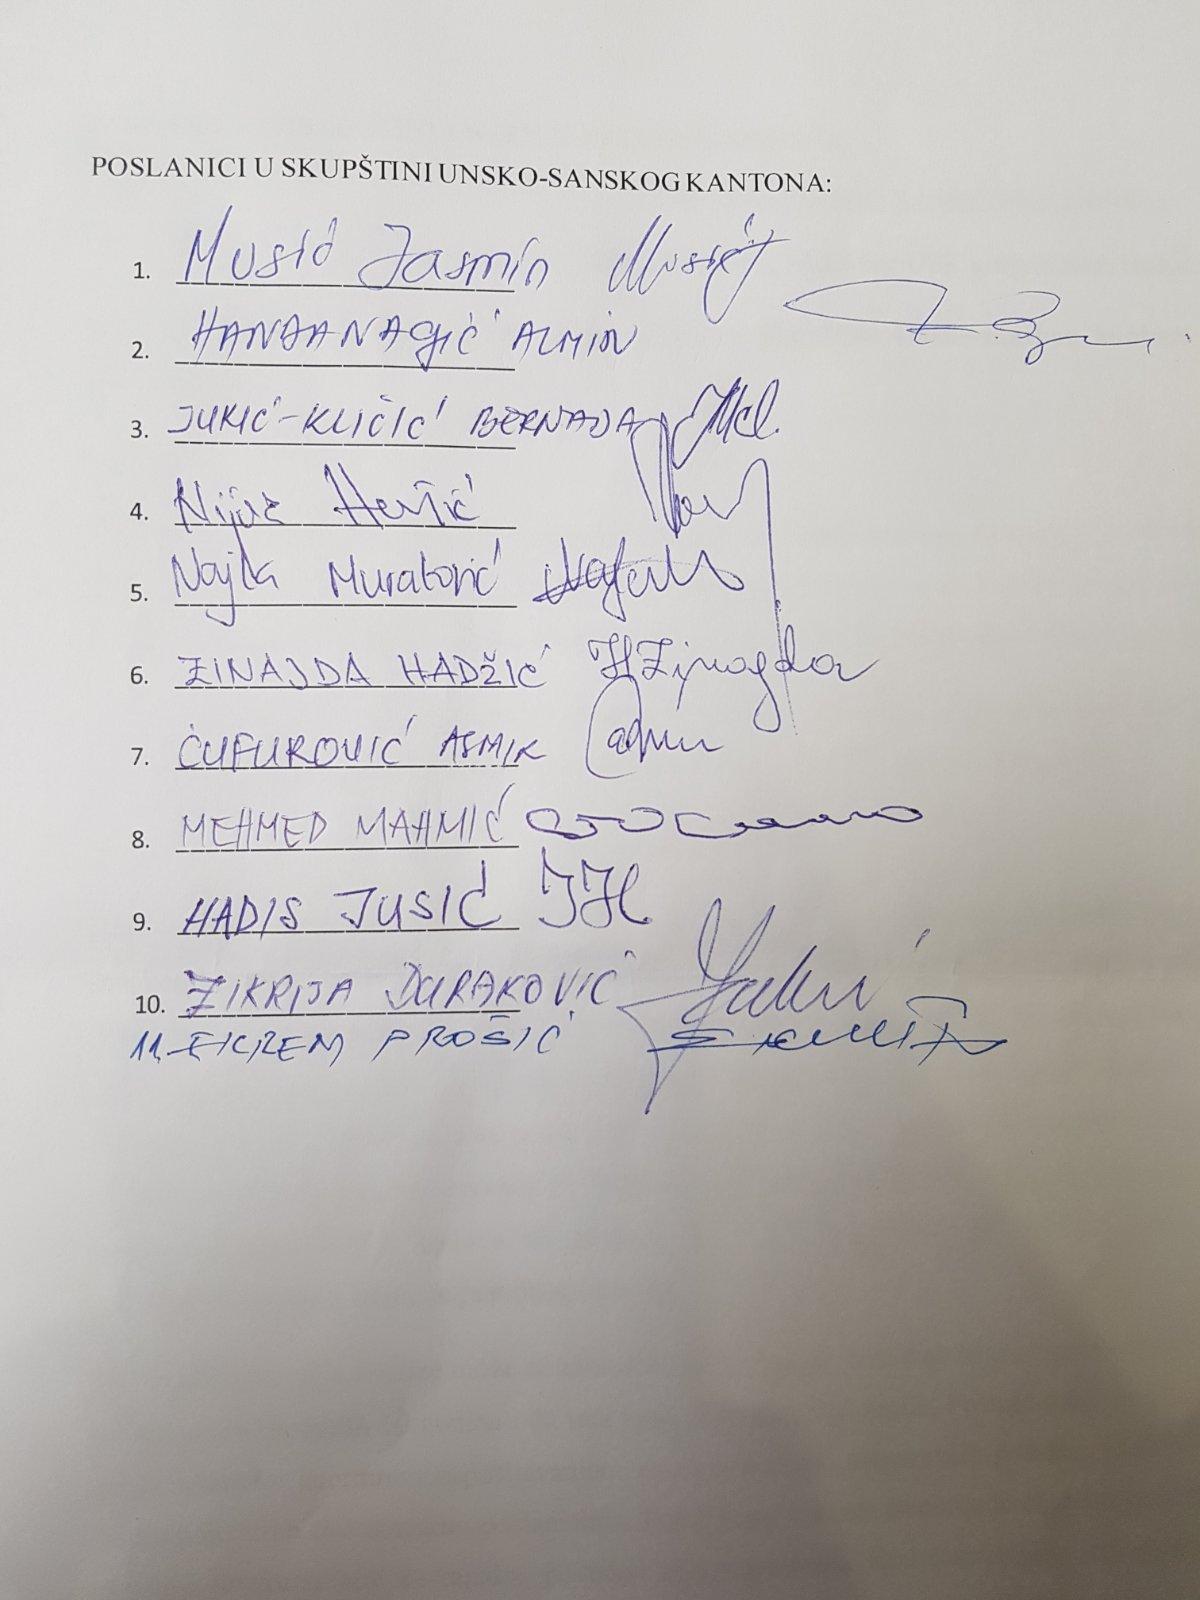 POSLANICI U SKUPŠTINI UNSKO-SANSKOG KANTONA:
1. Musić Jasmin Musić
2. HANDANAGIĆ ALMIN
3. JUKIĆ-KLIČIĆ BERNADA
4. Nijaz Hević
5. Najla Muratović
6. ZINAJDA HADŽIĆ H Zinajda
7. ĆUFUROVIĆ ASMIR
8. MEHMED MAHMIĆ
9. HADIS JUSIĆ JH
10. ZIKRIJA DURAKOVIĆ
11. FIKREM PROŠIĆ